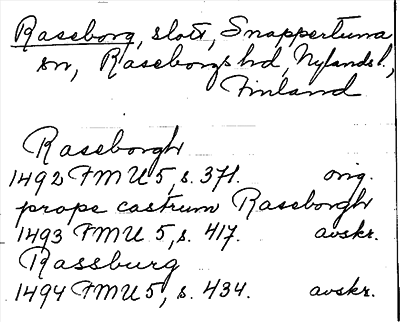 Raseborg, slott, Snappertuna
sn, Raseborgs hd, Nylands l.,
Finland
Raseborgh
1492 FMU 5, s. 371. orig.
prope castrum Raseborgh
1493 FMU 5, s. 417. avskr.
Rassburg
1494 FMU 5, s. 434. avskr.